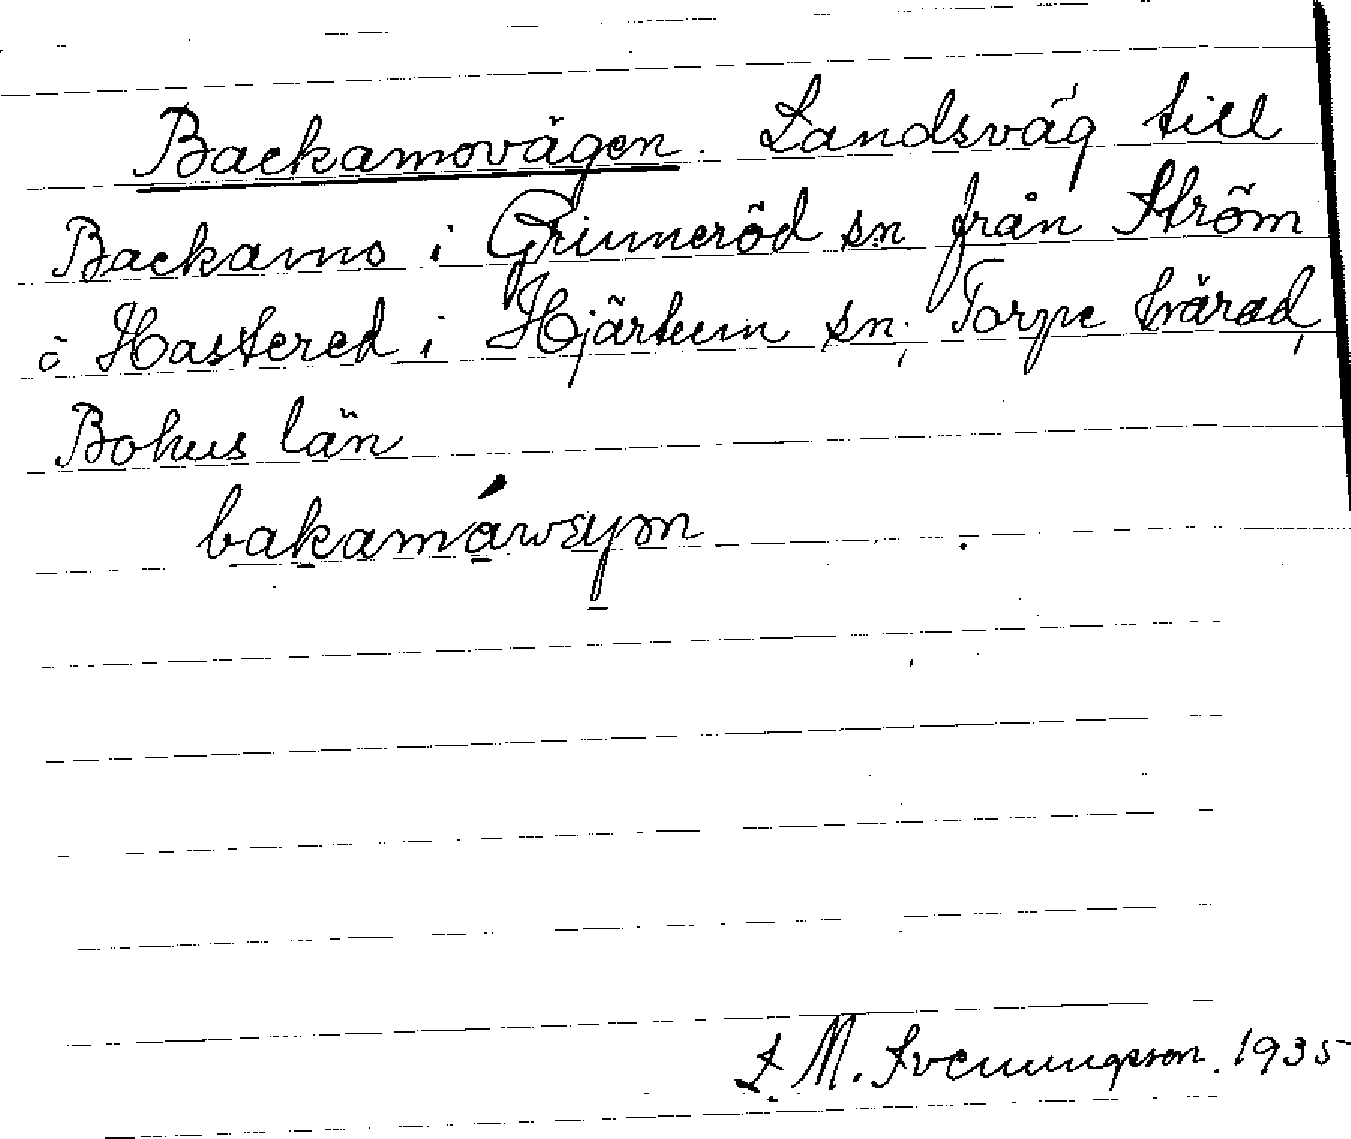 Backamovägen. Landsväg till
Backamo i Grinneröd sn från Ström
o Hastered i Hjärtum sn, Torpe härad,
Bohus län
bakamáwæɣən
S. M. Svenningsson. 1935